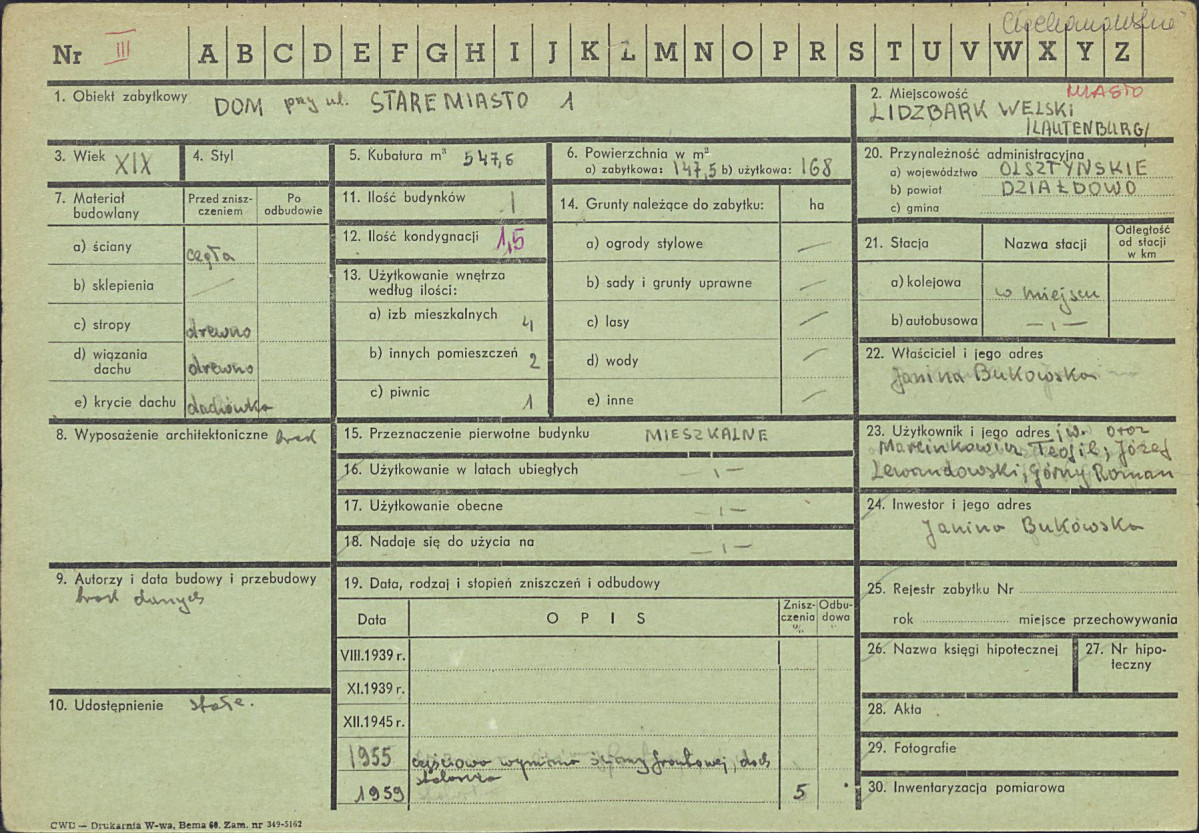 Ciechanowskie
Nr III A B C D E F G H I J K L M N O P R S T U V W X Y Z
1. Obiekt zabytkowy DOM przy ul. STARE MIASTO 1
2. Miejscowość MIASTO
LIDZBARK WELSKI
/LAUTENBURG/
3. Wiek XIX
4. Styl
5. Kubatura m³ 547,6
6. Powierzchnia w m²
a) zabytkowa: 147,5 b) użytkowa: 168
20. Przynależność administracyjna
a) województwo OLSZTYŃSKIE
b) powiat DZIAŁDOWO
c) gmina
7. Materiał budowlany
Przed zniszczeniem
Po odbudowie
a) ściany cegła
b) sklepienia —
c) stropy drewno
d) wiązania dachu drewno
e) krycie dachu dachówka
11. Ilość budynków 1
12. Ilość kondygnacji 1,5
13. Użytkowanie wnętrza
według ilości:
a) izb mieszkalnych 4
b) innych pomieszczeń 2
c) piwnic 1
14. Grunty należące do zabytku: ha
a) ogrody stylowe —
b) sady i grunty uprawne —
c) lasy —
d) wody —
e) inne —
21. Stacja
Nazwa stacji
Odległość
od stacji
w km
a) kolejowa w miejscu
b) autobusowa — ı —
22. Właściciel i jego adres
Janina Bukowska
8. Wyposażenie architektoniczne brak
15. Przeznaczenie pierwotne budynku MIESZKALNE
16. Użytkowanie w latach ubiegłych — ı —
17. Użytkowanie obecne — ı —
18. Nadaje się do użycia na — ı —
23. Użytkownik i jego adres j.w. oraz
Marcinkowicz Teofil, Józef
Lewandowski, Górny Roman
24. Inwestor i jego adres
Janina Bukowska
9. Autorzy i data budowy i przebudowy
brak danych
10. Udostępnienie stałe.
19. Data, rodzaj i stopień zniszczeń i odbudowy
Data
O P I S
Zniszczenia %
Odbudowa "
VIII.1939 r.
XI.1939 r.
XII.1945 r.
1955 częściowo wymiana ściany frontowej, dach
stolarka
1959 5
25. Rejestr zabytku Nr
rok miejsce przechowywania
26. Nazwa księgi hipotecznej
27. Nr hipoteczny
28. Akta
29. Fotografie
30. Inwentaryzacja pomiarowa
CWD — Drukarnia W-wa, Bema 68. Zam. nr 349-5162